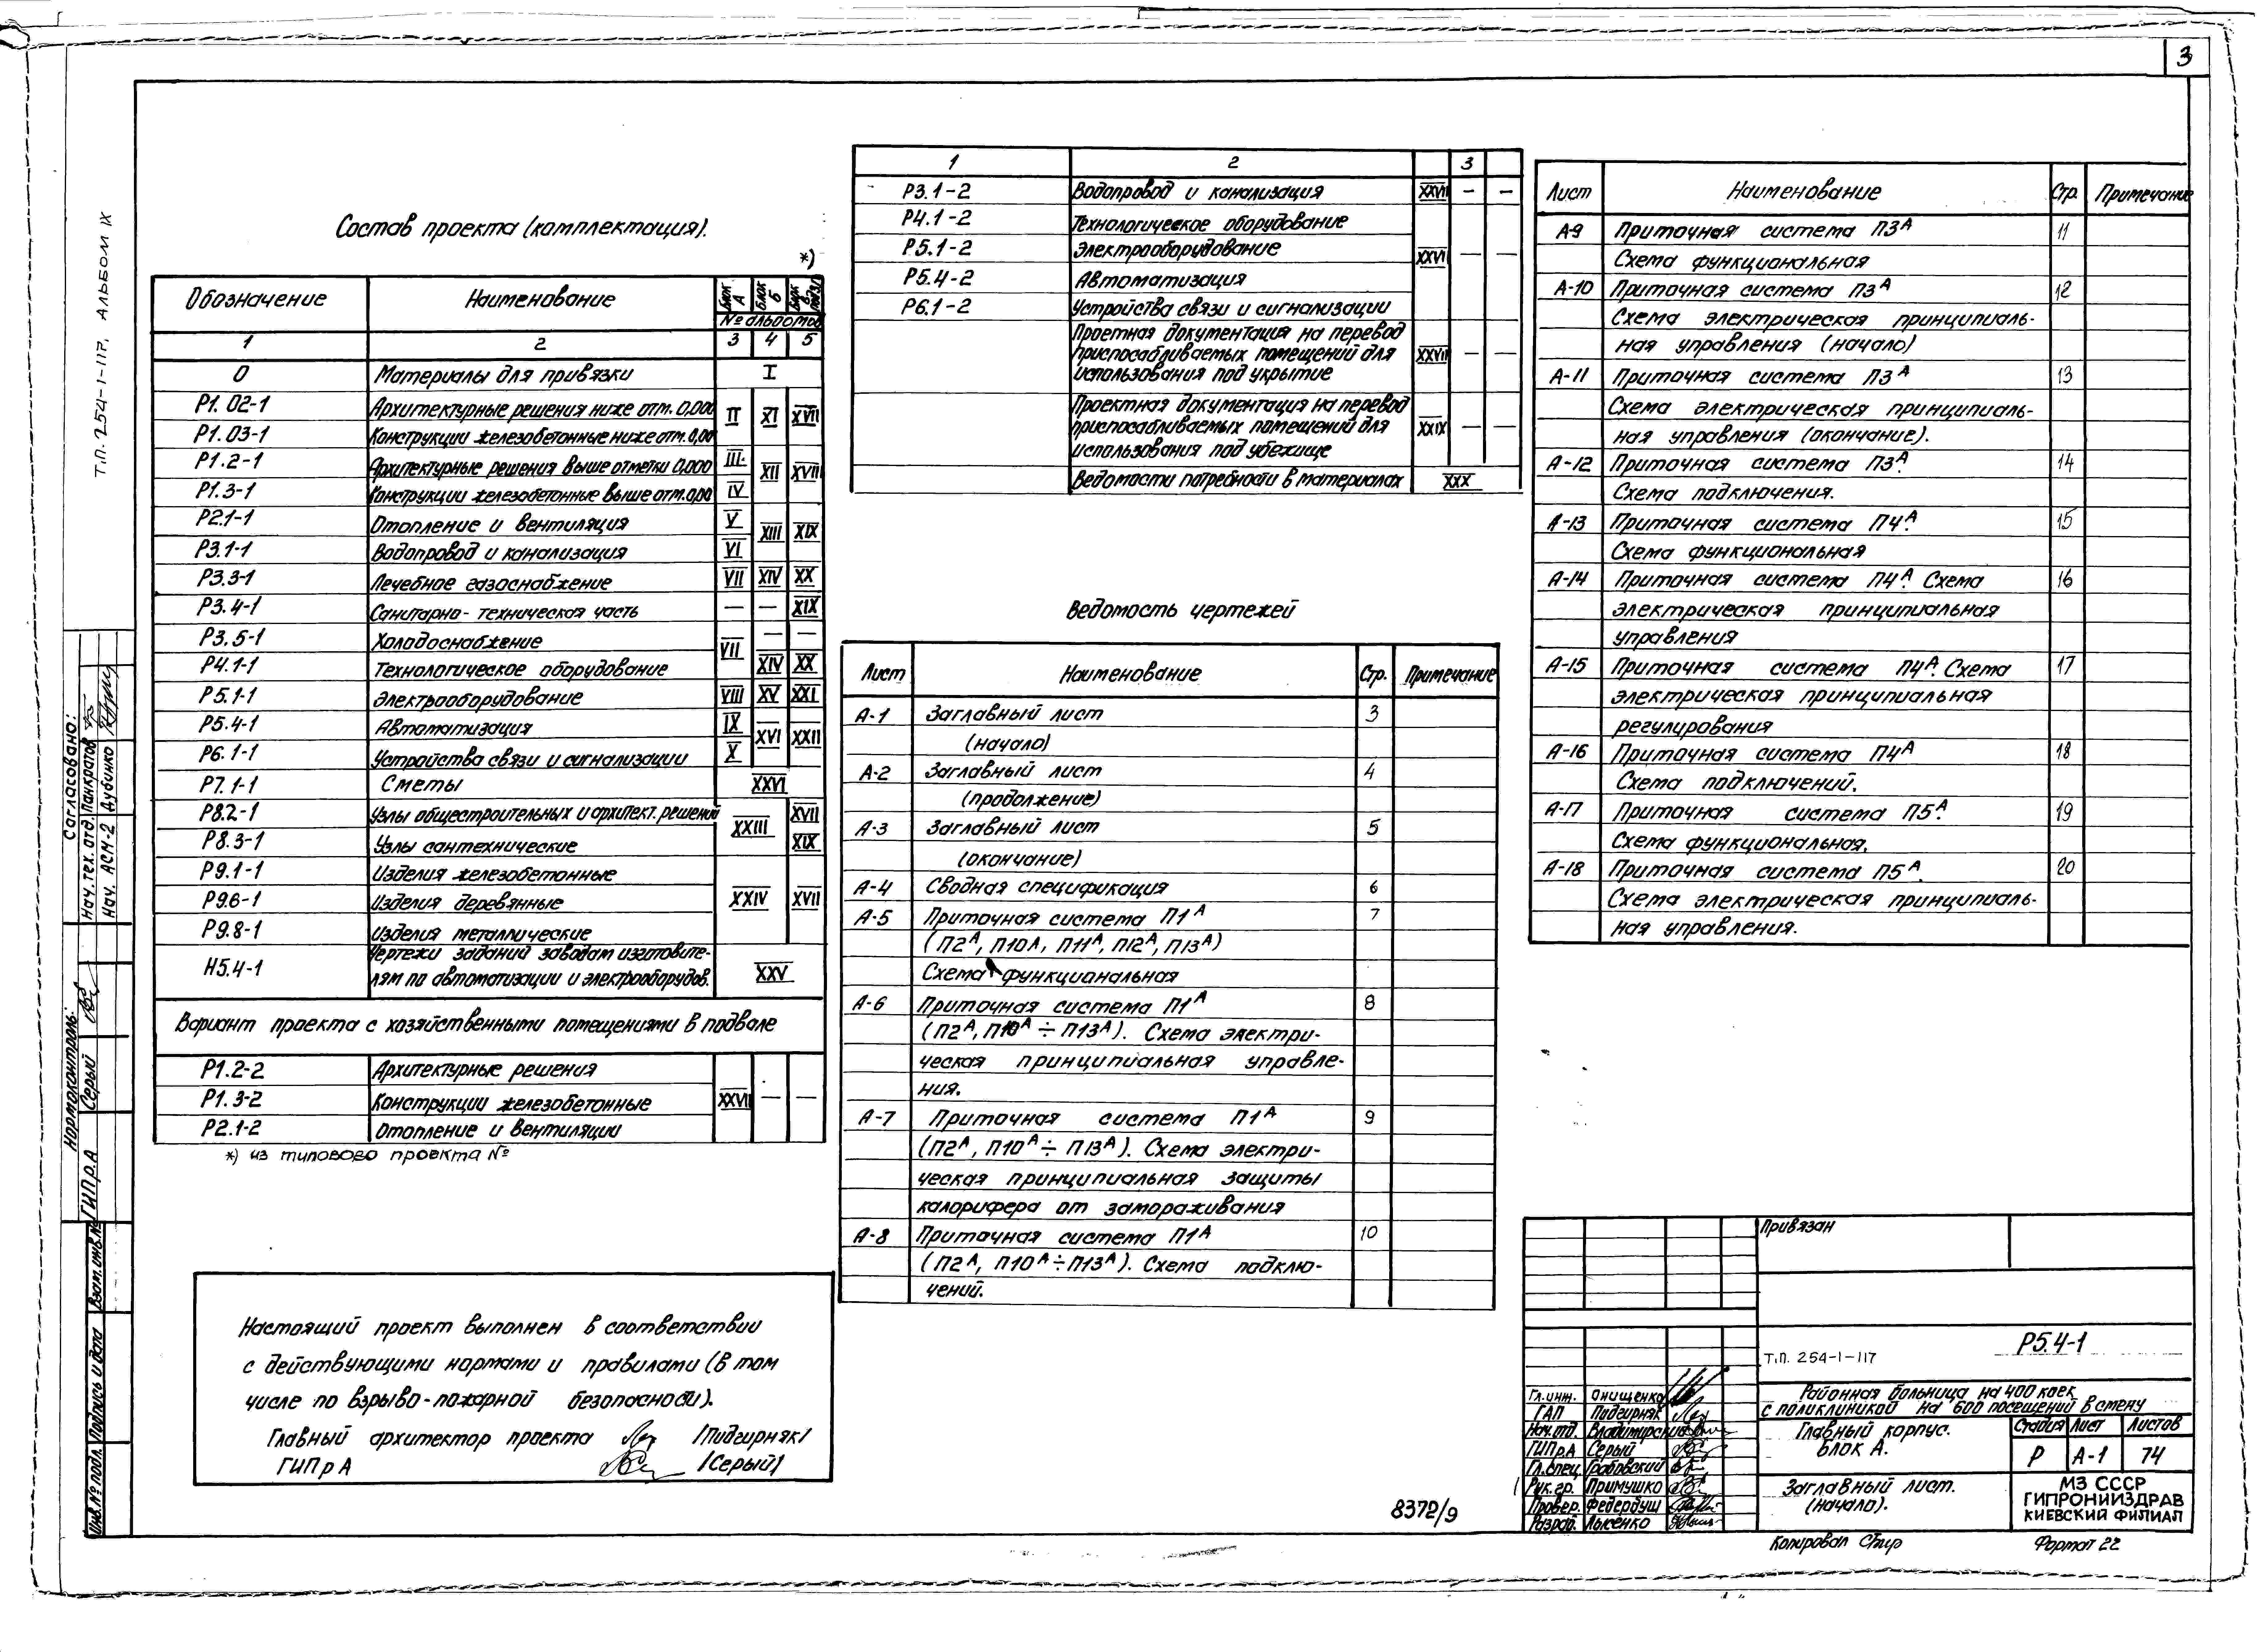 3
Т.П. 254-1-117, АЛЬБОМ IX
Состав проекта (комплектация).
*)
Обозначение Наименование блок А блок Б
№ альбомов
1 2 3 4 5
0 Материалы для привязки I
Р1.02-1 Архитектурные решения ниже отм. 0,000 II XI XVII
Р1.03-1 Конструкции железобетонные ниже отм. 0,00
Р1.2-1 Архитектурные решения выше отметки 0,000 III XII XVII
Р1.3-1 Конструкции железобетонные выше отм. 0,00 IV
Р2.1-1 Отопление и вентиляция V XIII XIX
Р3.1-1 Водопровод и канализация VI
Р3.3-1 Лечебное газоснабжение VII XIV XX
Р3.4-1 Санитарно-техническая часть — — XIX
Р3.5-1 Холодоснабжение VII — —
Р4.1-1 Технологическое оборудование XIV XX
Р5.1-1 Электрооборудование VIII XV XXI
Р5.4-1 Автоматизация IX XVI XXII
Р6.1-1 Устройства связи и сигнализации X
Р7.1-1 Сметы XXVI
Р8.2-1 Узлы общестроительных и архитект. решений XXIII XVII
Р8.3-1 Узлы сантехнические XIX
Р9.1-1 Изделия железобетонные
Р9.6-1 Изделия деревянные XXIV XVII
Р9.8-1 Изделия металлические
Н5.4-1 Чертежи заданий заводам изготовите-
лям по автоматизации и электрооборудов. XXV
Вариант проекта с хозяйственными помещениями в подвале
Р1.2-2 Архитектурные решения
Р1.3-2 Конструкции железобетонные XXVII — —
Р2.1-2 Отопление и вентиляции
*) из типового проекта №
Настоящий проект выполнен в соответствии
с действующими нормами и правилами (в том
числе по взрыво-пожарной безопасности).
Главный архитектор проекта /Пидгирняк/
ГИПрА /Серый/
1 2 3
Р3.1-2 Водопровод и канализация XXVII — —
Р4.1-2 Технологическое оборудование
Р5.1-2 Электрооборудование XXVI — —
Р5.4-2 Автоматизация
Р6.1-2 Устройства связи и сигнализации
Проетная документация на перевод
приспосабливаемых помещений для XXVII — —
использования под укрытие
Проектная документация на перевод
приспосабливаемых помещений для XXIX — —
использования под убежище
Ведомости потребности в материалах XXX
Ведомость чертежей
Лист Наименование Стр. Примечание
А-1 Заглавный лист 3
(начало)
А-2 Заглавный лист 4
(продолжение)
А-3 Заглавный лист 5
(окончание)
А-4 Сводная спецификация 6
А-5 Приточная система П1А 7
(П2А, П10А, П11А, П12А, П13А)
Схема функциональная
А-6 Приточная система П1А 8
(П2А, П10А ÷ П13А). Схема электри-
ческая принципиальная управле-
ния.
А-7 Приточная система П1А 9
(П2А, П10А ÷ П13А). Схема электри-
ческая принципиальная защиты
калорифера от замораживания
А-8 Приточная система П1А 10
(П2А, П10А ÷ П13А). Схема подклю-
чений.
Лист Наименование Стр. Примечание
А-9 Приточная система П3А 11
Схема функциональная
А-10 Приточная система П3А 12
Схема электрическая принципиаль-
ная управления (начало)
А-11 Приточная система П3А 13
Схема электрическая принципиаль-
ная управления (окончание).
А-12 Приточная система П3А. 14
Схема подключения.
А-13 Приточная система П4А. 15
Схема функциональная
А-14 Приточная система П4А. Схема 16
электрическая принципиальная
управления
А-15 Приточная система П4А. Схема 17
электрическая принципиальная
регулирования
А-16 Приточная система П4А 18
Схема подключений.
А-17 Приточная система П5А. 19
Схема функциональная.
А-18 Приточная система П5А. 20
Схема электрическая принципиаль-
ная управления.
Согласовано:
Нач. тех. отд. Панкратов
Нач. АСМ-2 Дубинко
Нормоконтроль:
ГИПр.А Серый
Взам. инв. №
Подпись и дата
Инв. № подл.
Привязан
Р5.4-1
Т.П. 254-1-117
Районная больница на 400 коек
с поликлиникой на 600 посещений в смену
Гл. инж. Онищенко
ГАП Пидгирняк
Нач. отд. Владимирский
ГИПрА Серый
Гл. спец. Грабовский
Рук. гр. Примушко
Провер. Федербуш
Разраб. Лысенко
Главный корпус.
блок А.
Стадия Лист Листов
Р А-1 74
Заглавный лист.
(начало).
МЗ СССР
ГИПРОНИИЗДРАВ
КИЕВСКИЙ ФИЛИАЛ
8372/9
Копировал
Формат 22